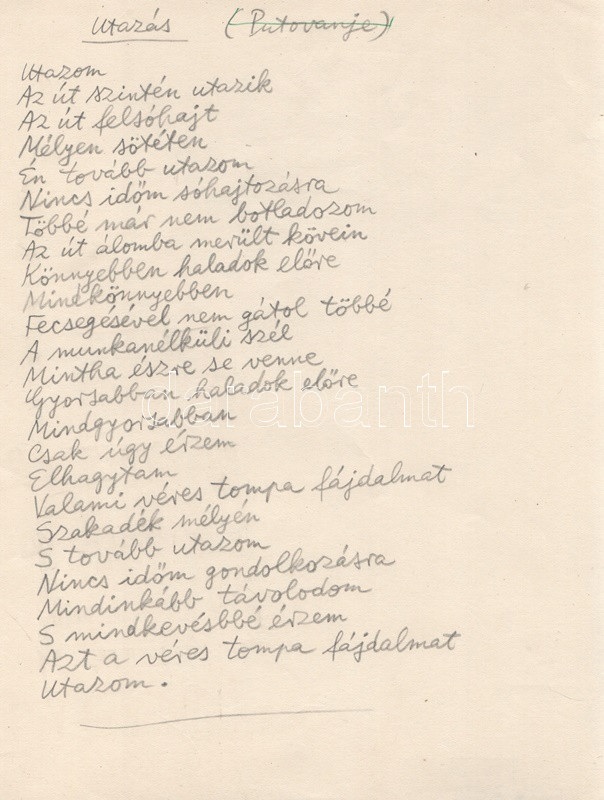 Utazás (Putovanje)
Utazom
Az út szintén utazik
Az út felsóhajt
Mélyen sötéten
Én tovább utazom
Nincs időm sóhajtozásra
Többé már nem botladozom
Az út álomba merült kövein
Könnyebben haladok előre
Mindkönnyebben
Fecsegésével nem gátol többé
A munkanélküli szél
Mintha észre se venne
Gyorsabban haladok előre
Mindgyorsabban
Csak úgy érzem
Elhagytam
Valami véres tompa fájdalmat
Szakadék mélyén
S tovább utazom
Nincs időm gondolkozásra
Mindinkább távolodom
S mindkevésbbé érzem
Azt a véres tompa fájdalmat
Utazom.
darabanth